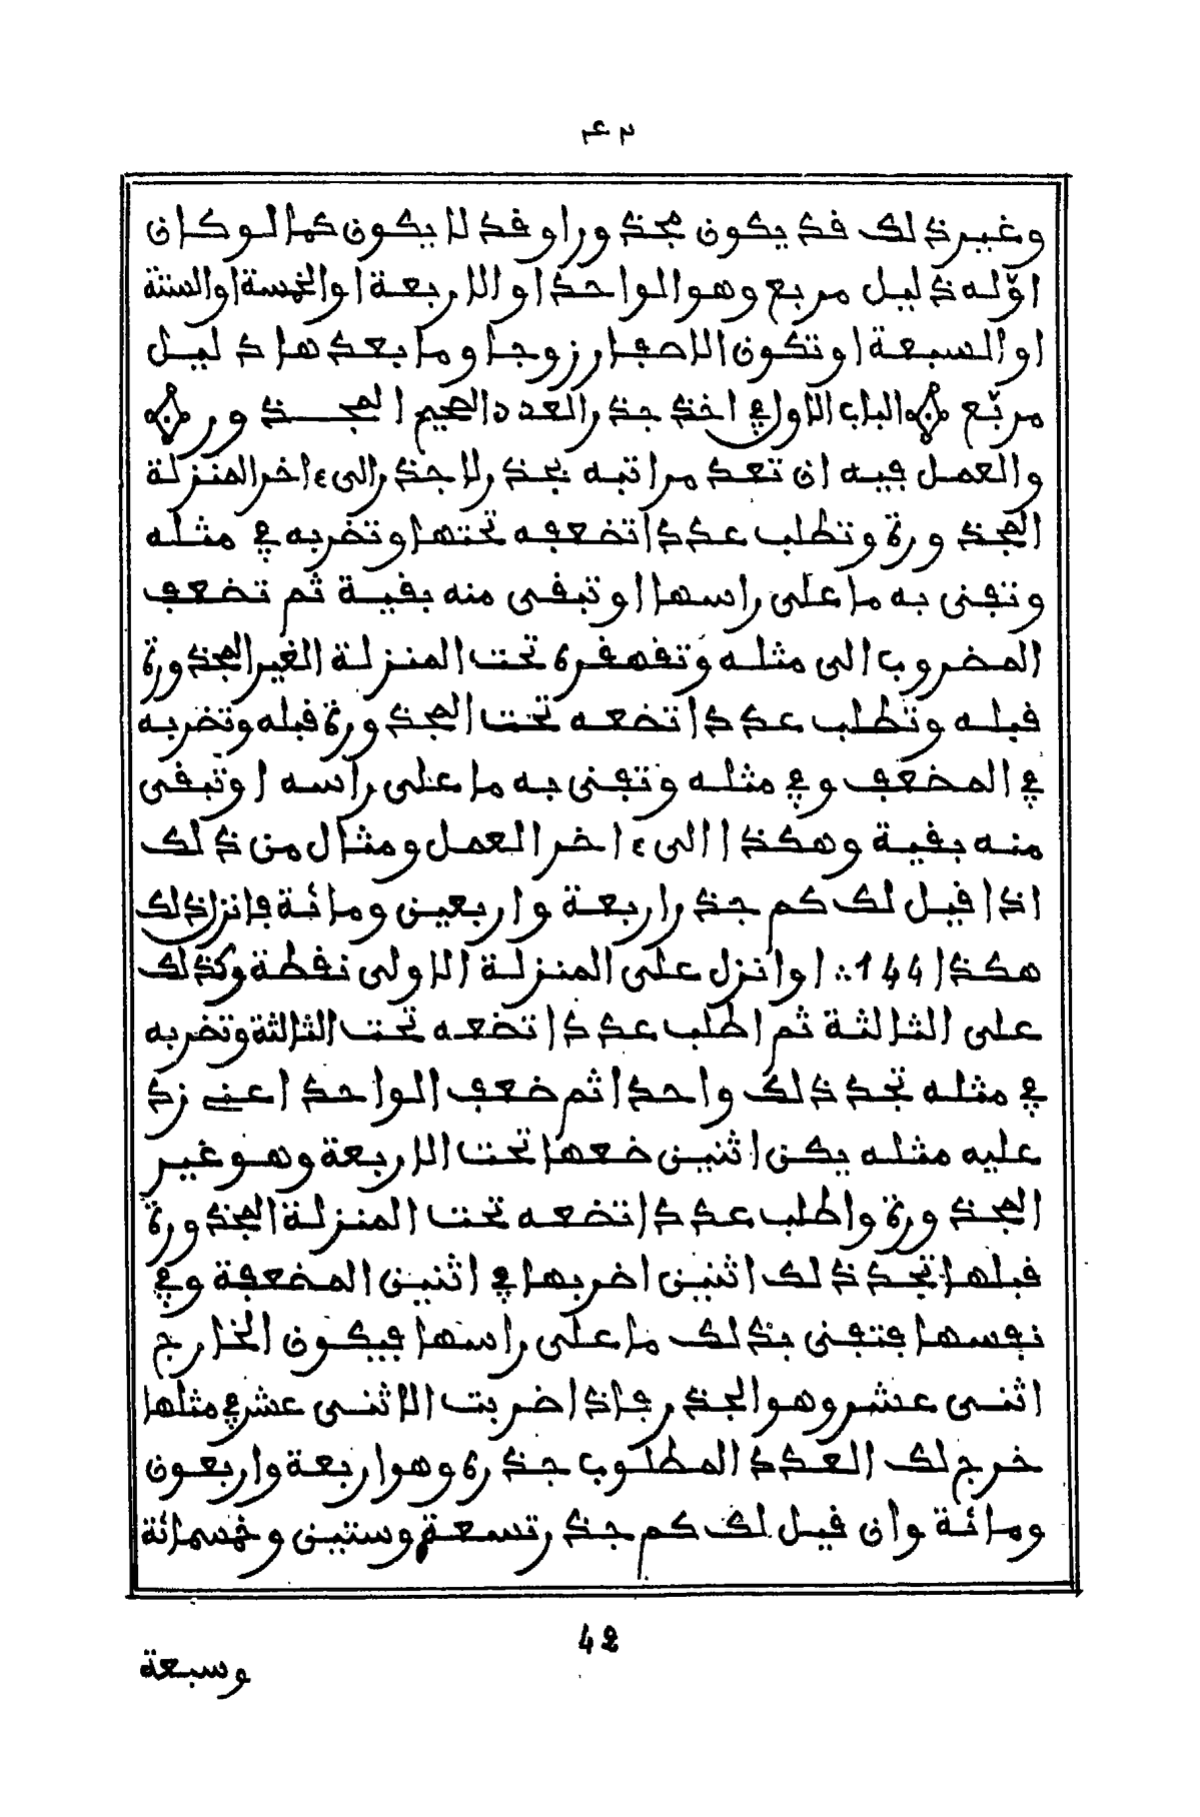 وغير ذلك قد يكون مجذورا وقد لا يكون كما لو كان
اوّله دليل مربع وهو الواحد او الاربعة او الخمسة او الستة
او السبعة او تكون الاصفار زوجا وما بعدها دليل
مربّع والباب الاول في اخذ جذر العدد الصحيم المجذور
والعمل فيه ان تعد مراتبه بجذر لا جذر الىء اخر المنزلة
المجذورة وتطلب عددا تضعفه تحتها وتضربه في مثله
وتفنى به ما على راسها او تبقى منه بقية ثم تضعف
المضروب الى مثله وتقهقره تحت المنزلة الغير المجذورة
قبله وتطلب عددا تضعه تحت المجذورة قبله وتضربه
في المضعف وفي مثله وتفنى به ما على راسه او تبقى
منه بقية وهكذا الىء اخر العمل ومثال من ذلك
اذا قيل لك كم جذر اربعة واربعين ومائة فانزل ذلك
هكذا 144 ∴ وانزل على المنزلة الاولى نقطة وكذلك
على الثالثة ثم اطلب عددا تضعه تحت الثالثة وتضربه
في مثله تجد ذلك واحدا ثم ضعف الواحد اعني زد
عليه مثله يكن اثنين ضعها تحت الاربعة وهو غير
المجذورة واطلب عددا تضعه تحت المنزلة المجذورة
قبلها تجد ذلك اثنين اضربها في اثنين المضعفة وفي
نفسها فتفنى بذلك ما على راسها فيكون الخارج
اثنى عشر وهو الجذر فاذا ضربت الاثنى عشر في مثلها
خرج لك العدد المطلوب جذره وهو اربعة واربعون
ومائة وان قيل لك كم جذر تسعة وستين وخمسمائة
42
وسبعة